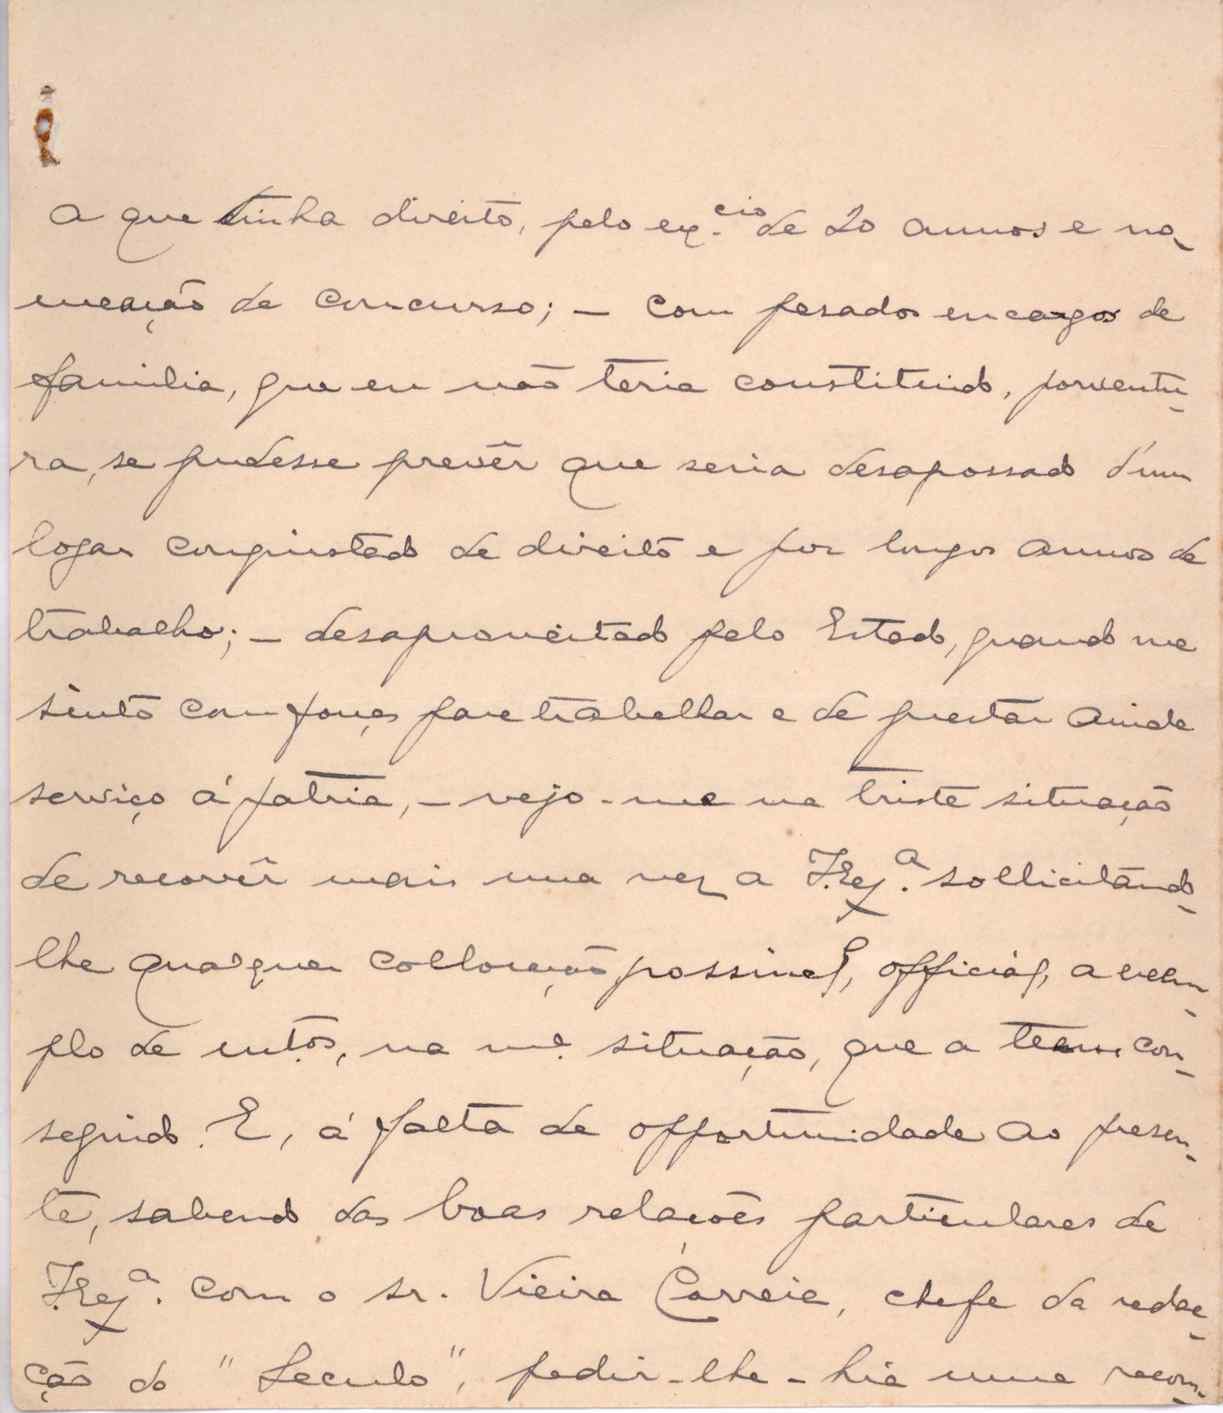 a que tinha direito, pelo ex.cio de 20 annos e no-
meação de concurso; — com pesados encargos de
familia, que eu não teria constituido, porventu-
ra, se pudesse prevêr que seria desapossado d'um
logar conquistado de direito e por longos annos de
trabalho; — desaproveitado pelo Estado, quando me
sinto com forças para trabalhar e de prestar ainda
serviço á patria, — vejo-me na triste situação
de recorrêr mais uma vez a V. Ex.ª sollicitando-
lhe qualquer collocação possivel, official, a exem-
plo de mt.os, na m.ª situação, que a teem con-
seguido. E, á falta de opportunidade ao presen-
te, sabendo das boas relações particulares de
V. Ex.ª com o sr. Vieira Correia, chefe da redac-
ção do "Seculo", pedir-lhe-hia uma recom-